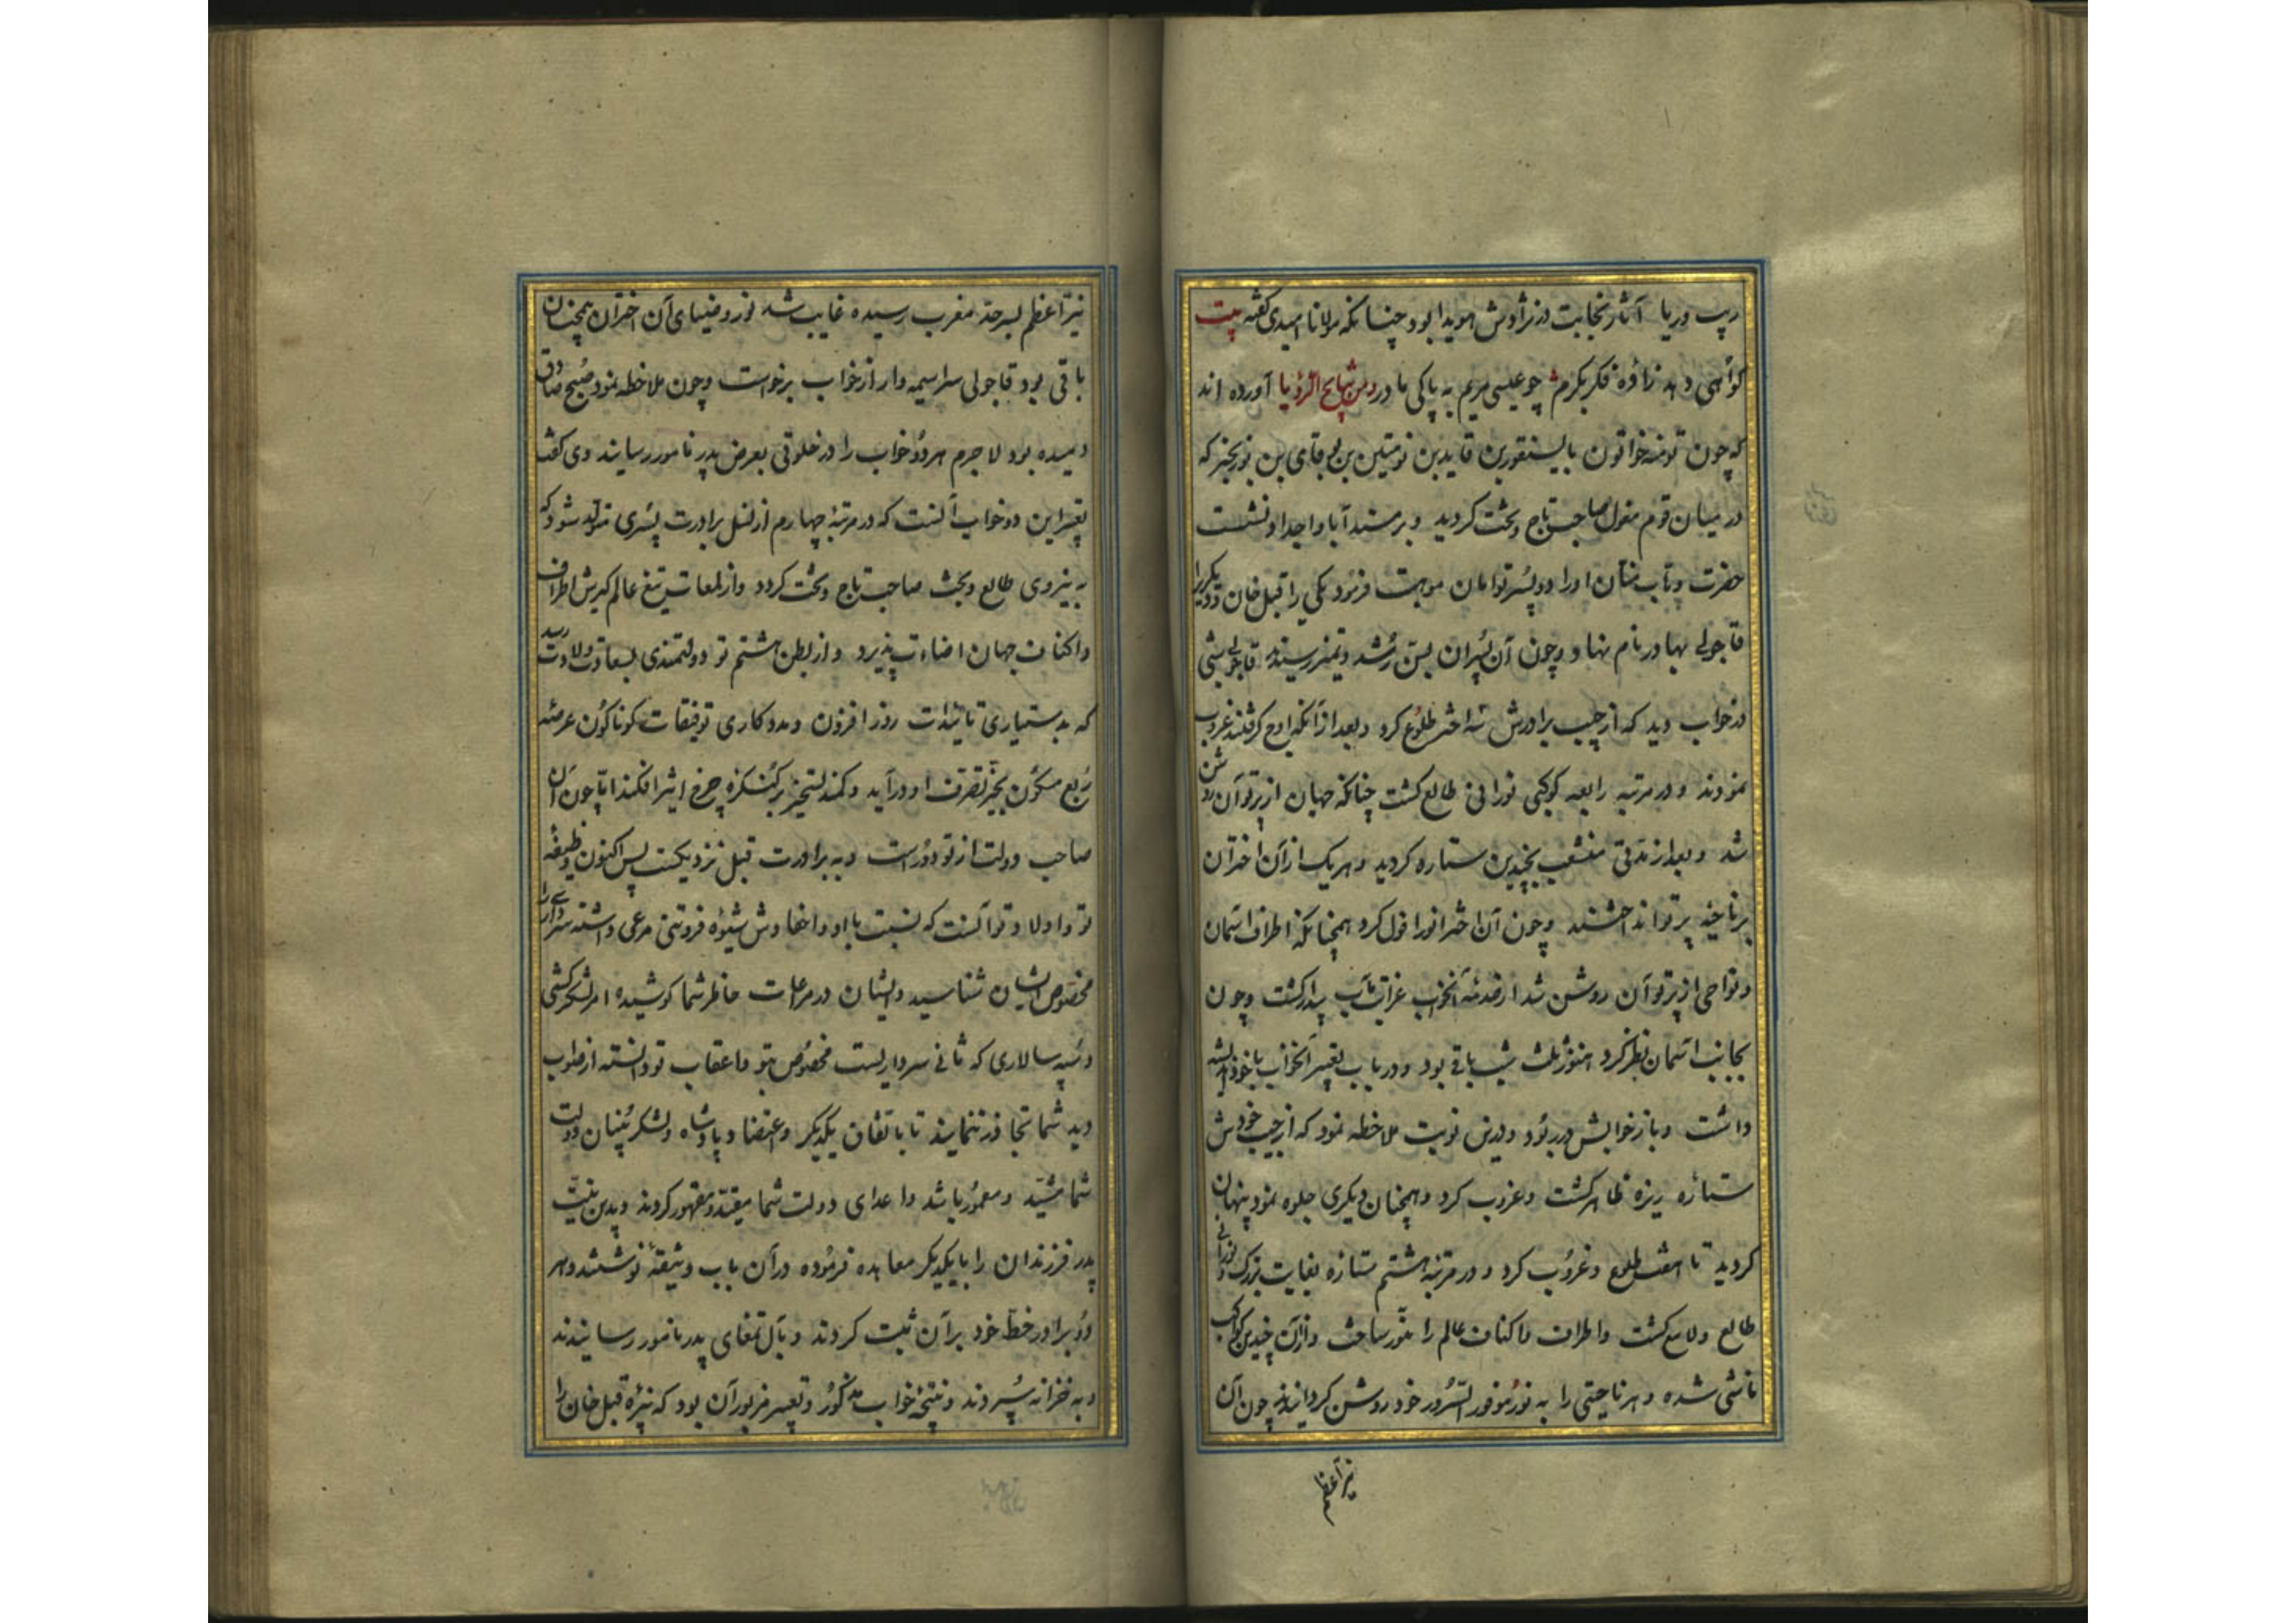 ریب و ریا آثار نجابت در نژادش هویدا بود چنانکه مولانا امیدی گفته بیت
گواهی دهد زاده فکر بکرم چو عیسی مریم به پاکی مادر و من نتایج الرؤیا آورده اند
که چون تومنه خواتون بایسنقر بن قایدین تومنین بن بوقای بن بوزنجر که
در میان قوم مغول صاحب تاج و تخت کردید و بر مسند آبا و اجداد نشست
حضرت وهاب منان او را دو پسر توامان موهبت فرمود یکی را قبل خان و دیگری را
قاجولی بهادر نام نهاد و چون آن پسران بسن رشد و تمیز رسیدند قاجولی شبی
در خواب دید که از جیب برادرش سه اختر طلوع کرد و بعد از آنکه اوج گرفتند غروب
نمودند و در مرتبه رابعه کوکبی نورانی طالع کشت چنانکه جهان از پرتو آن روشن
شد و بعد از مدتی منشعب بچندین ستاره کردید و هر یک از آن اختران
بر ناحیه پرتو انداختند و چون آن اختر انور افول کرد همچنانکه اطراف آسمان
و نواحی از پرتو آن روشن شد از صدمه آنخواب غرائب مآب بیدار کشت و چون
بجانب آسمان نظر کرد هنوز ثلث شب باقی بود و در باب تعبیر آنخواب با خود اندیشه
داشت و باز خوابش در ربود و درین نوبت ملاحظه نمود که از جیب خودش
ستاره ریزه ظاهر کشت و غروب کرد و همچنان دیکری جلوه نمود پنهان
کردید تا هفت طلوع و غروب کرد و در مرتبه هشتم ستاره بغایت بزرک و نورانی
طالع و لامع کشت و اطراف و اکناف عالم را منور ساخت و از آن چندین کواکب
ناشی شده و هر ناحیتی را به نور موفور السرور خود روشن کردانیدند چون آن
نیر اعظم
نیر اعظم بسر حد مغرب رسیده غایب شد نور و ضیای آن اختران همچنان
باقی بود قاجولی سراسیمه وار از خواب برخواست و چون ملاحظه نمود صبح صادق
دمیده بود لاجرم هر دو خواب را در خلوتی بعرض پدر نامور رسانید وی گفت
تعبیر این دو خواب آنست که در مرتبه چهارم از نسل برادرت پسری متولد شود که
به نیروی طالع و بخت صاحب تاج و تخت کردد و از لمعات تیغ عالم کیرش اطراف
و اکناف جهان اضاءت پذیرد و از بطن هشتم تو دولتمندی بسعادت ولادت رسد
که بدستیاری تائیدات روز افزون و مددکاری توفیقات کوناکون عرصه
ربع مسکون بحیز تصرف او در آید و کمند تسخیر بر کنکره چرخ اثیر افکند اما چون آن
صاحب دولت از تو دورست و به برادرت قبل نزدیکست پس اکنون وظیفه
تو و اولاد تو آنست که نسبت باو و احفادش شیوه فروتنی مرعی داشته سرداری را
مخصوص ایشان شناسید و ایشان در مراعات خاطر شما کوشیده امر لشکر کشی
و سپه سالاری که ثانی سرداریست مخصوص بتو و اعقاب تو دانسته از صواب
دید شما تجاوز ننمایند تا باتفاق یکدیکر و اعتضاد پادشاه و لشکر بنیان دولت
شما مشید و معمور باشد و اعدای دولت شما مقید و مقهور کردند و بدین نیت
پدر فرزندان را با یکدیکر معاهده فرموده در آن باب وثیقه نوشتند و هر
دو برادر خط خود بر آن ثبت کردند و بآل تمغای پدر نامور رسانیدند
و به خزانه سپردند و نتیجه خواب مذکور و تعبیر مزبور آن بود که نبیره قبل خان را